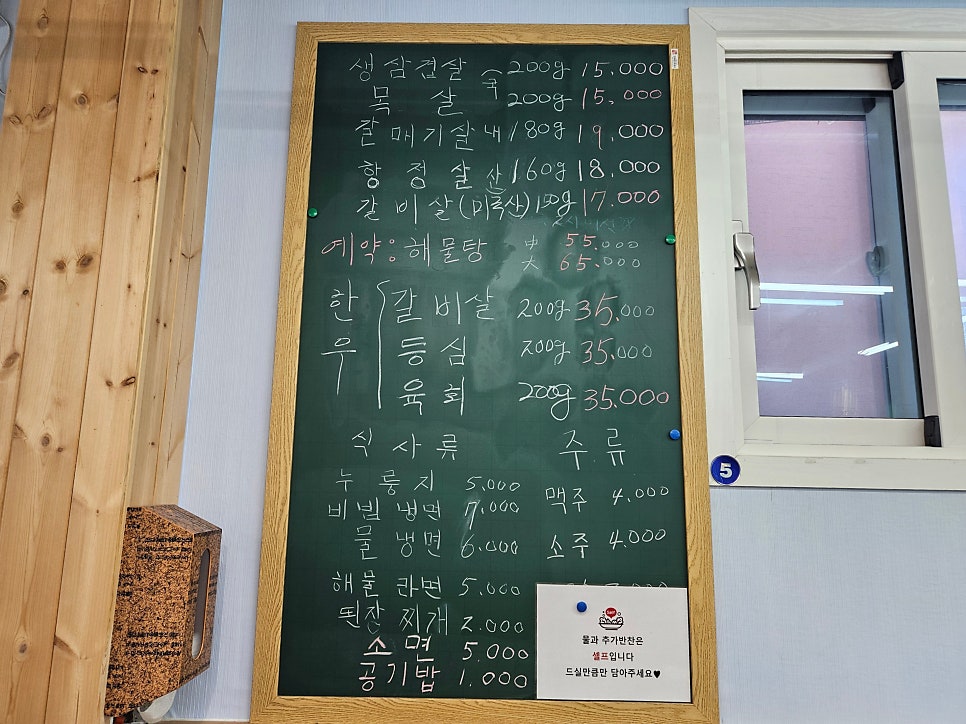 생삼겹살 200g 15.000
목살 200g 15.000
갈매기살 180g 19.000
항정살 160g 18.000
갈비살(미국산) 17.000
예약: 해물탕 中 55.000
大 65.000
한우
갈비살 200g 35.000
등심 200g 35.000
육회 200g 35.000
식사류
누룽지 5.000
비빔냉면 7.000
물냉면 6.000
해물라면 5.000
된장찌개 2.000
소면 5.000
공기밥 1.000
주류
맥주 4.000
소주 4.000
물과 추가반찬은
셀프입니다
드실만큼만 담아주세요♥
5